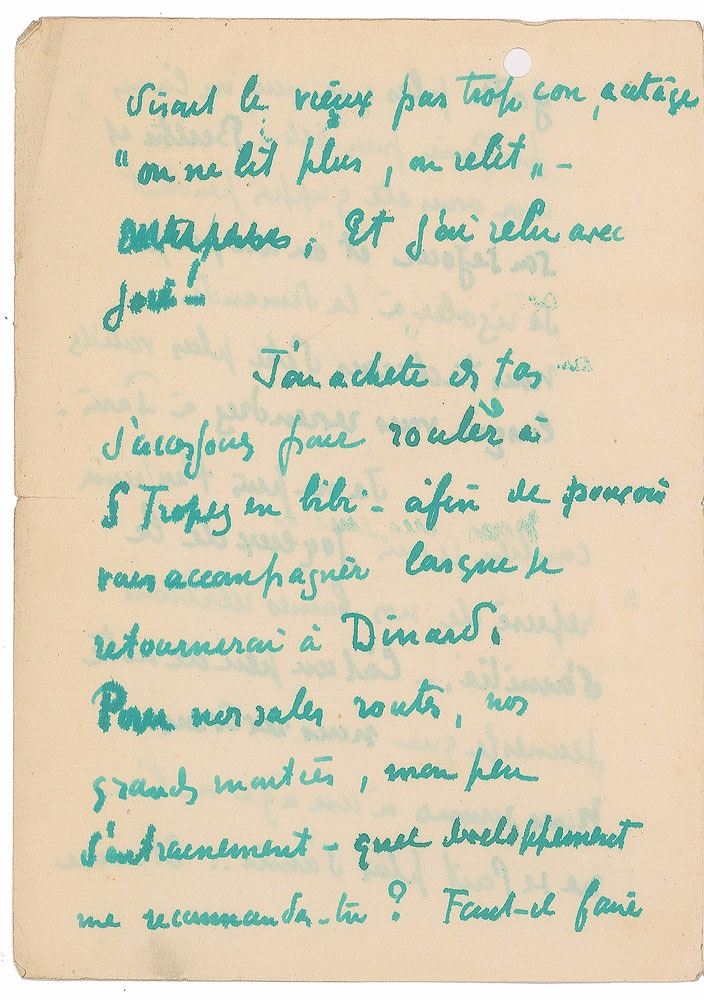 disait le vieux pas trop con, "à cet âge
"on ne lit plus, on relit" -
Et j'ai relu avec
joie!
J'en achète des tas
d'accessoires pour rouler à
S Tropez en bibi - afin de pouvoir
vous accompagner lorsque je
retournerai à Dinard.
Pour nos sales routes, nos
grandes montées, mon peu
d'entraînement - quel développement
me recommandes-tu ? Faut-il faire